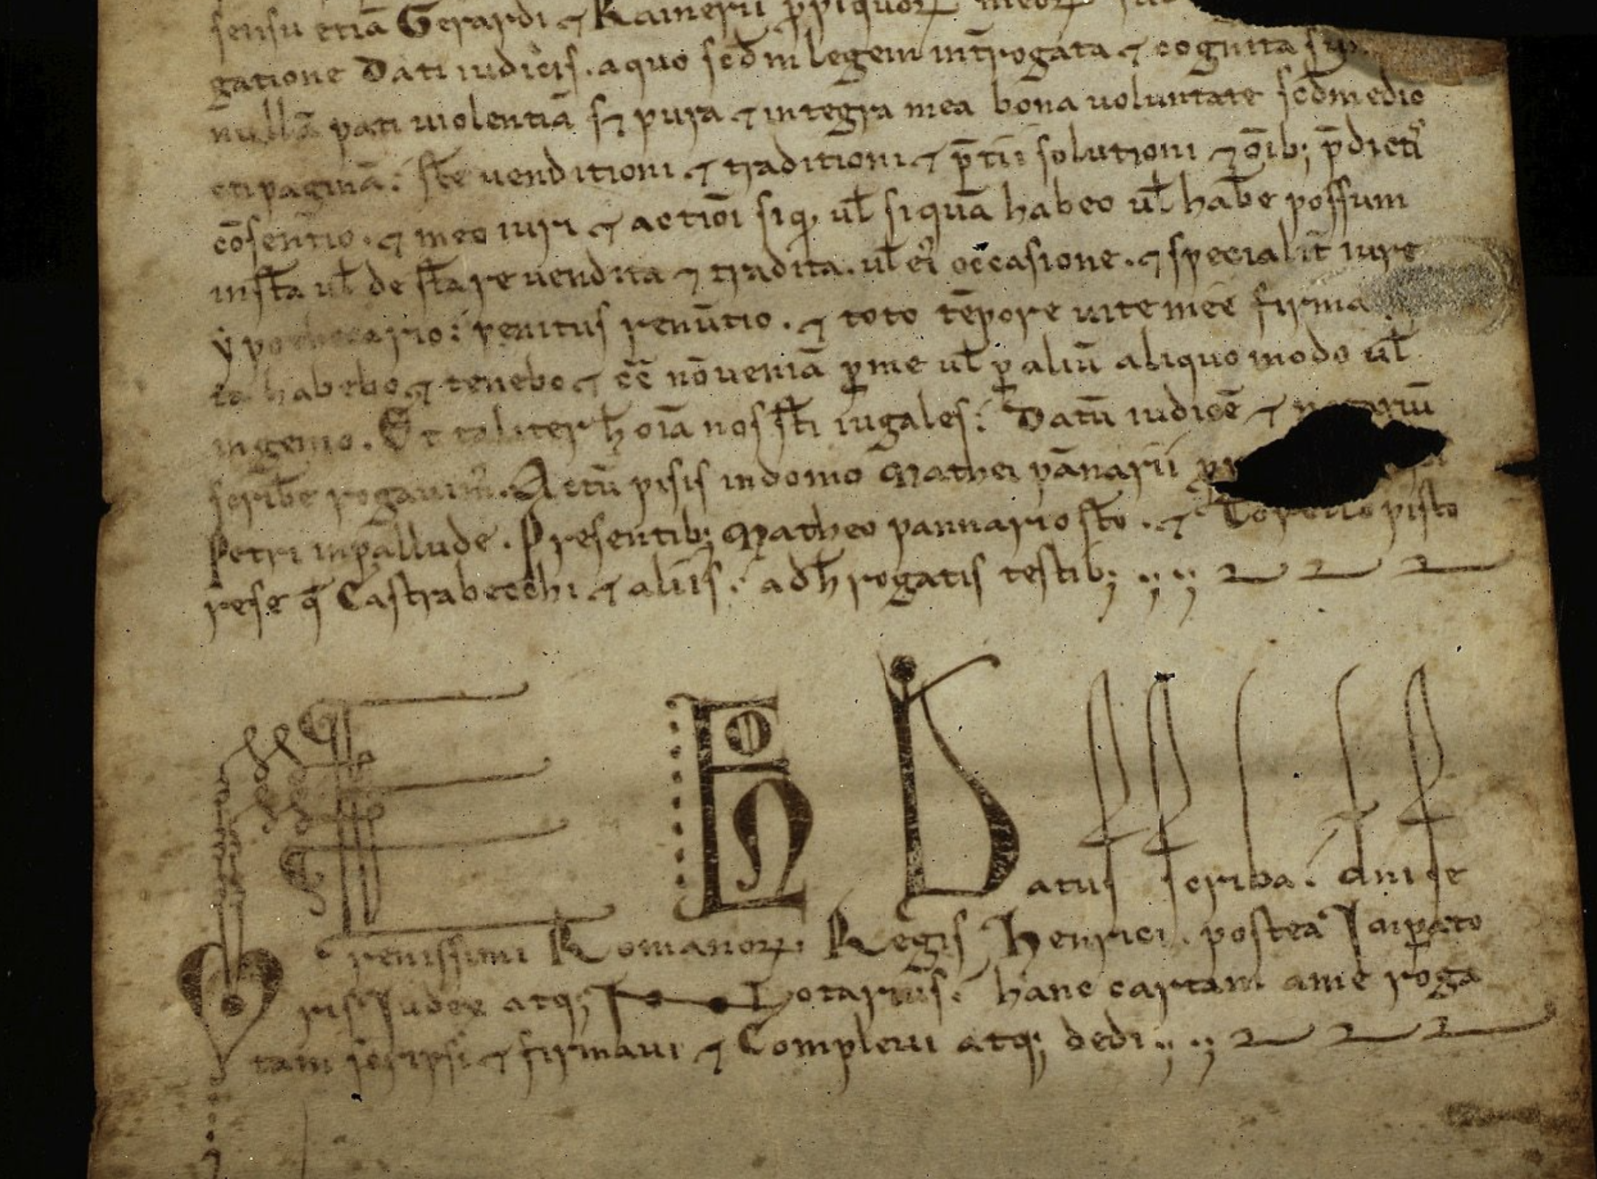 sensu etiā Gerardi ⁊ Raineriı p̄piquoꝝ meoꝝ
gatione Dati iudicis. a quo scd̄m legem int̄rogata ⁊ cognita
nullā pati uiolentiā sꝫ pura ⁊ integra mea bona uoluntate scd̄m edic
ti paginā: st̄e uenditioni ⁊ traditioni ⁊ p̄tii solutioni ⁊ oīb; p̄dictis
cōsentio. ⁊ meo iuri ⁊ actiōi siq̄ ul̄ si quā habeo ul̄ hab̄e possum
in st̄a ul̄ de st̄a re uendita ⁊ tradita. ul̄ ei' occasione. ⁊ specialit̄ iure
ypothecario: penitus renūtio. ⁊ toto tēpore uite mee firma
ta habebo ⁊ tenebo ⁊ cē nō ueniā p me ul̄ p aliū aliquo modo ul̄
ingenio. Et taliter h̄ oīa nos st̄i iugales: Datū iudicē ⁊ notariū
scrib̄e rogauim'. Actū pisis in domo Mathei pānarii
Petri in pallude. Presentib; Matheo pannario st̄o. ⁊ Torello pisto
re se q̄ Castrabecchi ⁊ aliis: ad h̄ rogatis testib;
Datus scriba: dni se
renissimi Romanoꝝ Regis Henrici. postea Inpato
ris Iudex atq; Notarius: hanc cartam a me roga
tam scripsi ⁊ firmaui ⁊ Compleui atq; dedi